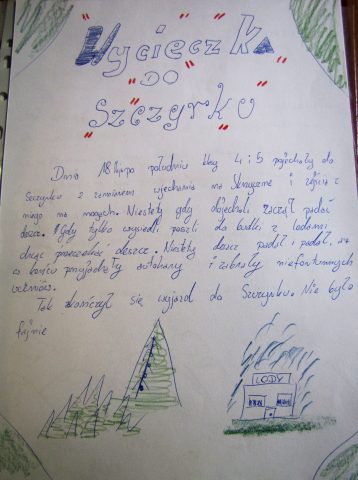 Wycieczka
DO
Szczyrku
Dnia 18 lipca południu klasy 4 i 5 pojechały do
Szczyrku z zamiarem wjechania na Skrzyczne i zejścia z
niego na nogach. Niestety gdy dojechali zaczął padać
deszcz. Gdy tylko wysiedli poszli do budki z lodami
chcąc przeczekać deszcz. Niestety deszcz padał i padał, aż
w końcu przyjechały autokary i zabrały niefortunnych
uczniów.
Tak skończył się wyjazd do Szczyrku. Nie było
fajnie
LODY